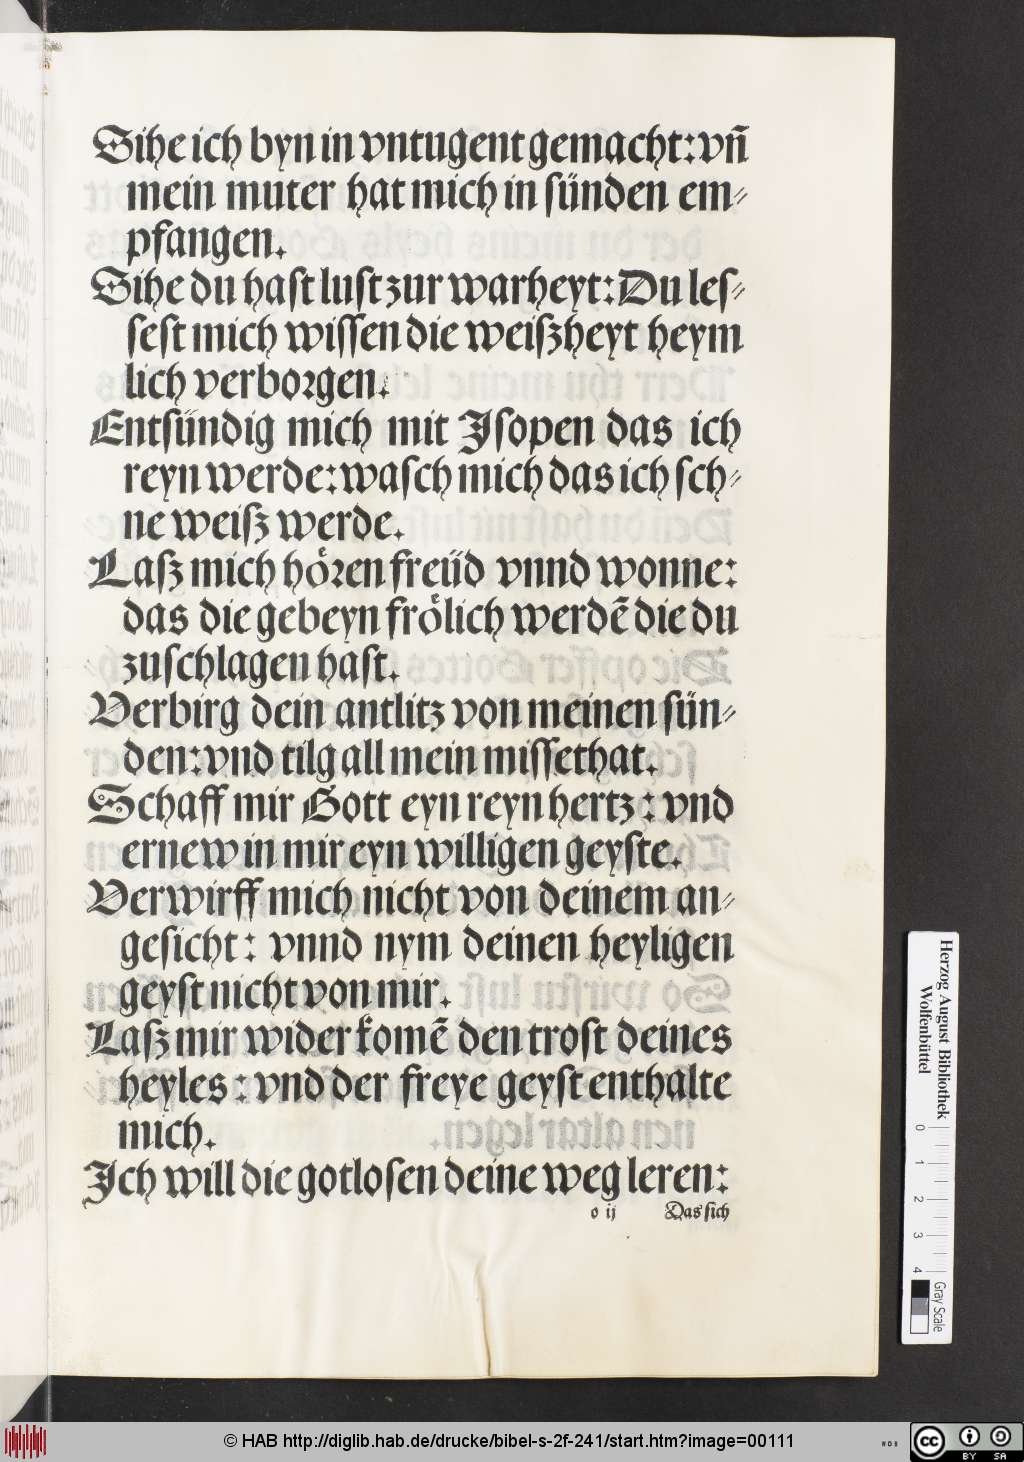 Sihe ich byn in vntugent gemacht: vñ
mein muter hat mich in sünden em⸗
pfangen.
Sihe du haſt luſt zur warheyt: Du leſ⸗
ſeſt mich wiſſen die weiſzheyt heym
lich verborgen.
Entſündig mich mit Jſopen das ich
reyn werde: waſch mich das ich ſch⸗
ne weiſz werde.
Laſz mich hoͤren freüd vnnd wonne:
das die gebeyn froͤlich werdẽ die du
zuſchlagen haſt.
Verbirg dein antlitz von meinen ſün⸗
den: vnd tilg all mein miſſethat.
Schaff mir Gott eyn reyn hertz: vnd
ernew in mir eyn willigen geyſte.
Verwirff mich nicht von deinem an⸗
geſicht: vnnd nym deinen heyligen
geyſt nicht von mir.
Laſz mir wider komẽ den troſt deines
heyles: vnd der freye geyſt enthalte
mich.
Jch will die gotloſen deine weg leren:
o ij Das ſich
Herzog August Bibliothek
Wolfenbüttel
0 1 2 3 4
Gray Scale
© HAB http://diglib.hab.de/drucke/bibel-s-2f-241/start.htm?image=00111
WDB
cc BY SA